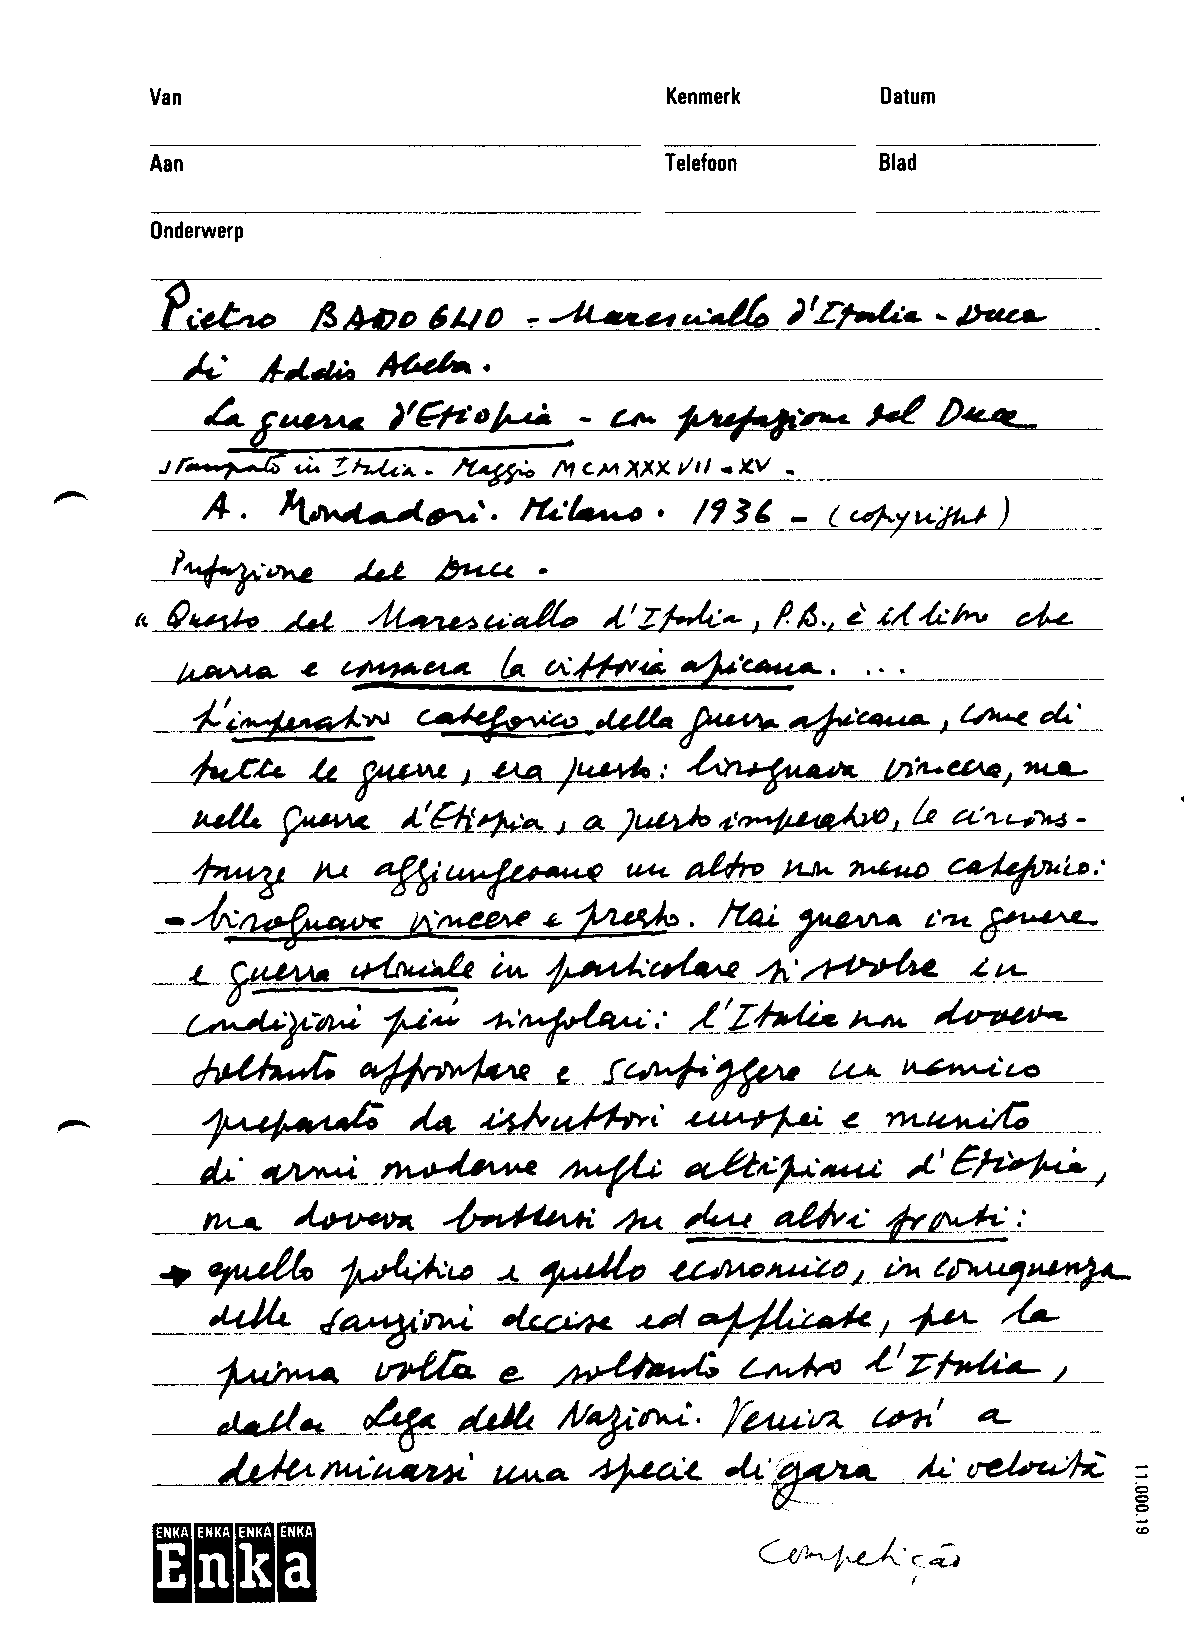 Van Kenmerk Datum
Aan Telefoon Blad
Onderwerp
Pietro BADOGLIO - Maresciallo d'Italia - Duca
di Addis Abeba.
La guerra d'Etiopia - con prefazione del Duce
stampato in Italia - Maggio MCMXXXVII - XV -
A. Mondadori. Milano. 1936 - (copyright)
Prefazione del Duce.
" Questo del Maresciallo d'Italia, P.B., è il libro che
narra e consacra la vittoria africana. ...
L'imperativo categorico della guerra africana, come di
tutte le guerre, era questo: bisognava vincere, ma
nella guerra d'Etiopia, a questo imperativo, le circons-
tanze ne aggiungevano un altro non meno categorico:
- bisognava vincere e presto. Mai guerra in genere
e guerra coloniale in particolare si svolse in
condizioni più singolari: l'Italia non doveva
soltanto affrontare e sconfiggere un nemico
preparato da istruttori europei e munito
di armi moderne sugli altipiani d'Etiopia,
ma doveva battersi su due altri fronti:
→ quello politico e quello economico, in conseguenza
delle sanzioni decise ed applicate, per la
prima volta e soltanto contro l'Italia,
dalla Lega delle Nazioni. Veniva così a
determinarsi una specie di gara di velocità
competição
ENKA ENKA ENKA ENKA
Enka
11.000.19